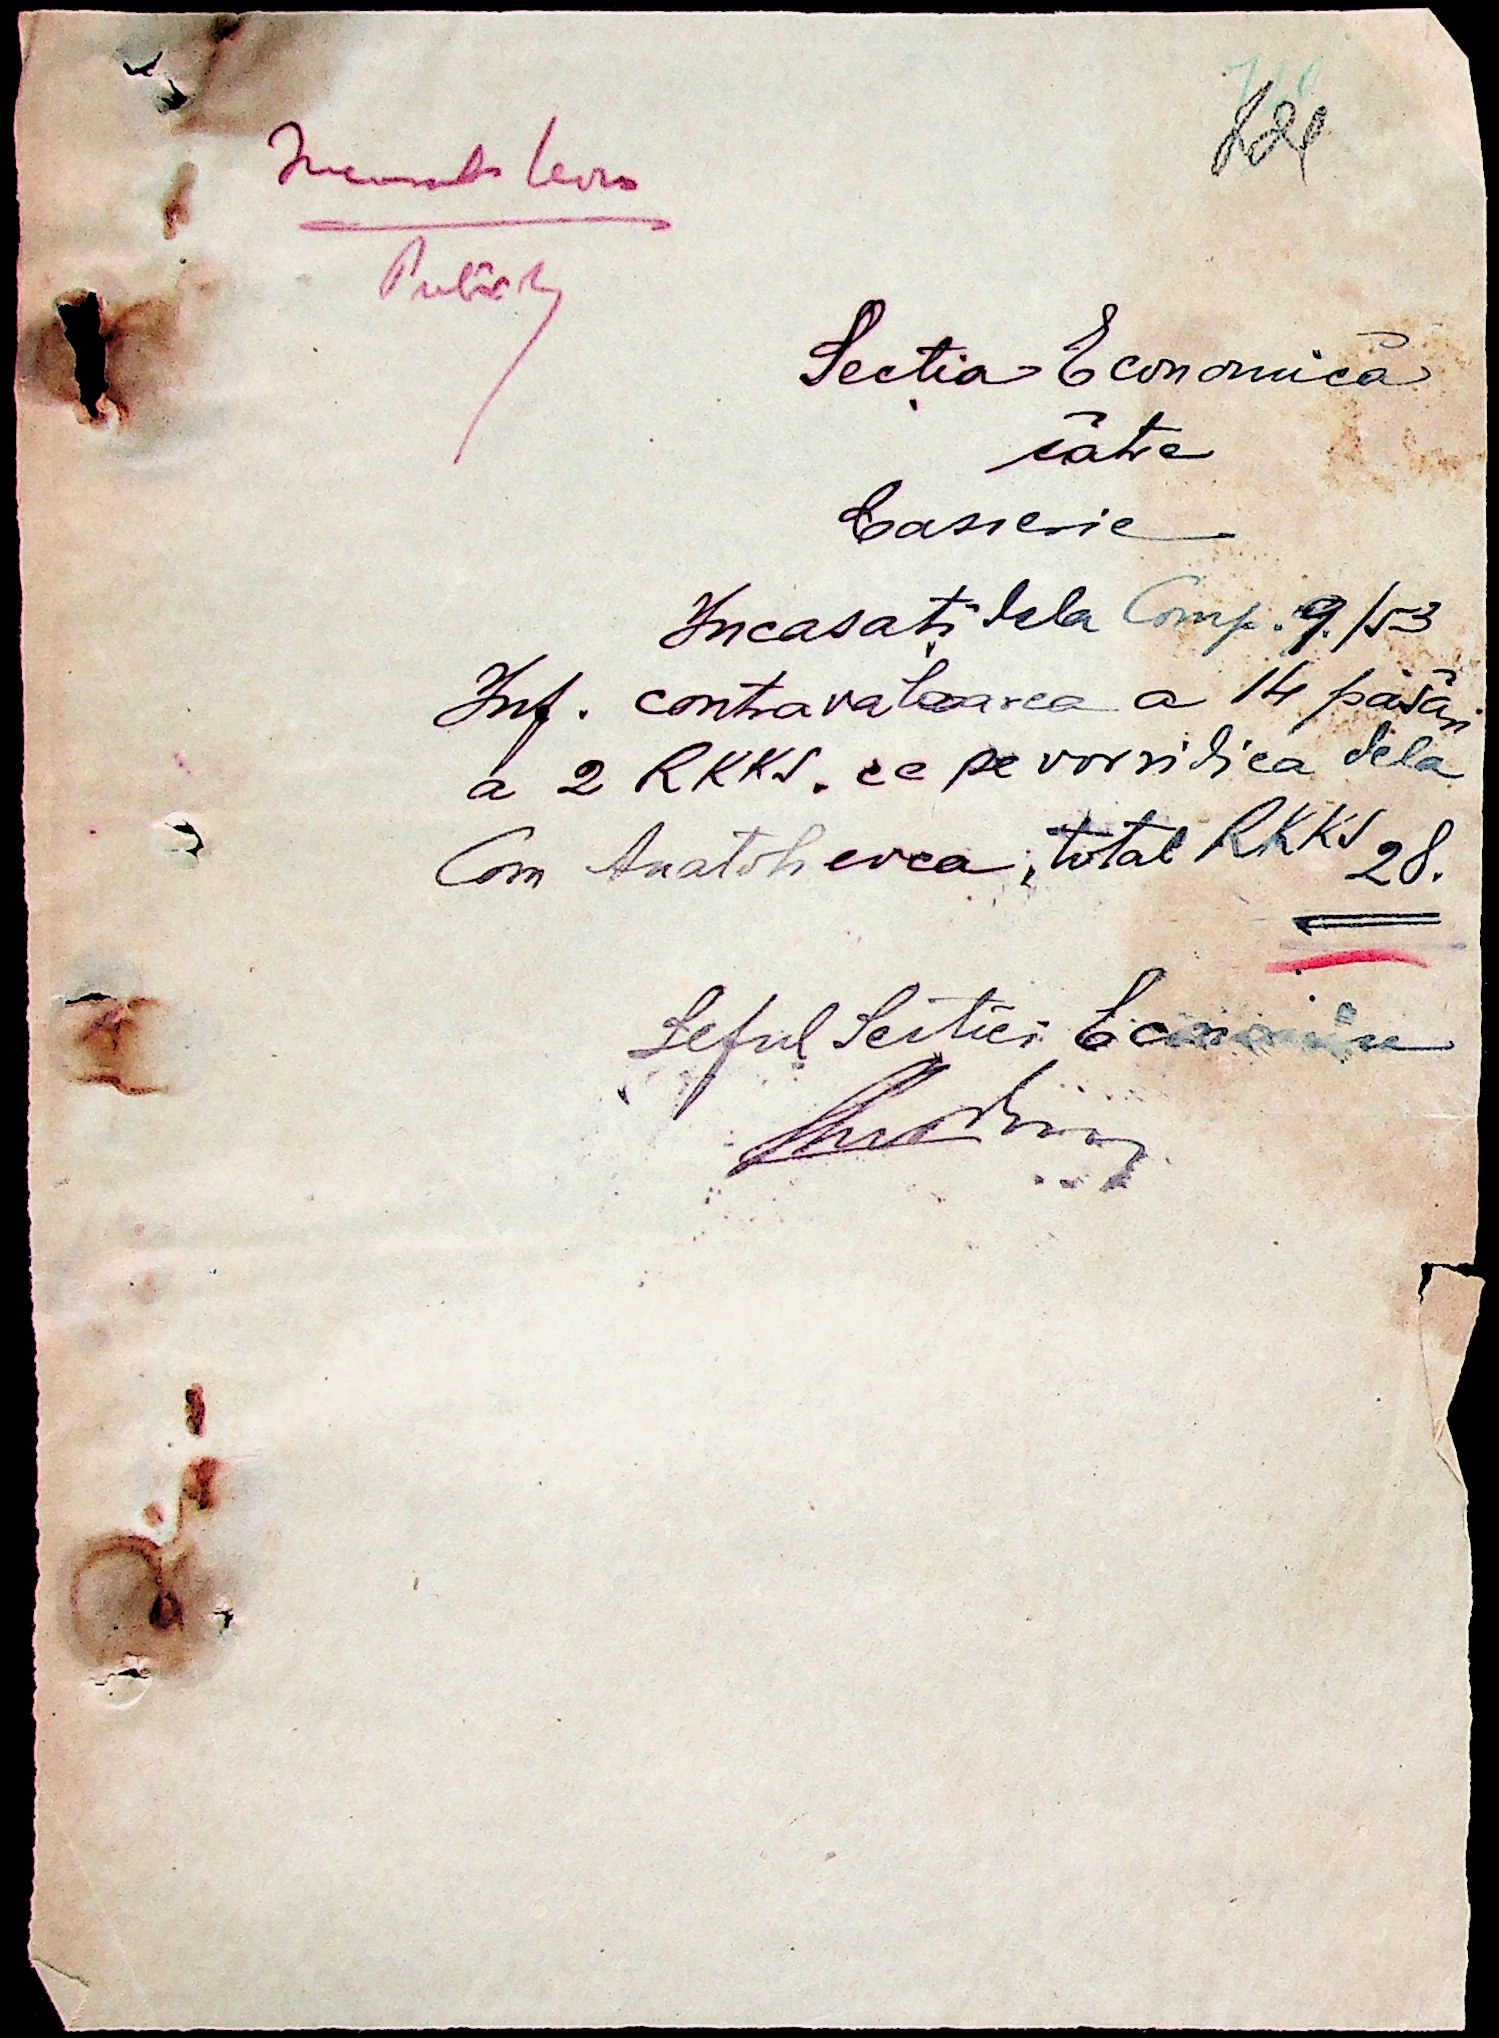 Secția Economică
către
Casierie
Incasați dela Comp. 9./53
Inf. contravaloarea a 14 păsări
a 2 RKKS. ce se vor ridica dela
Com Anatolievca, total RKKS 28.
Șeful Secției